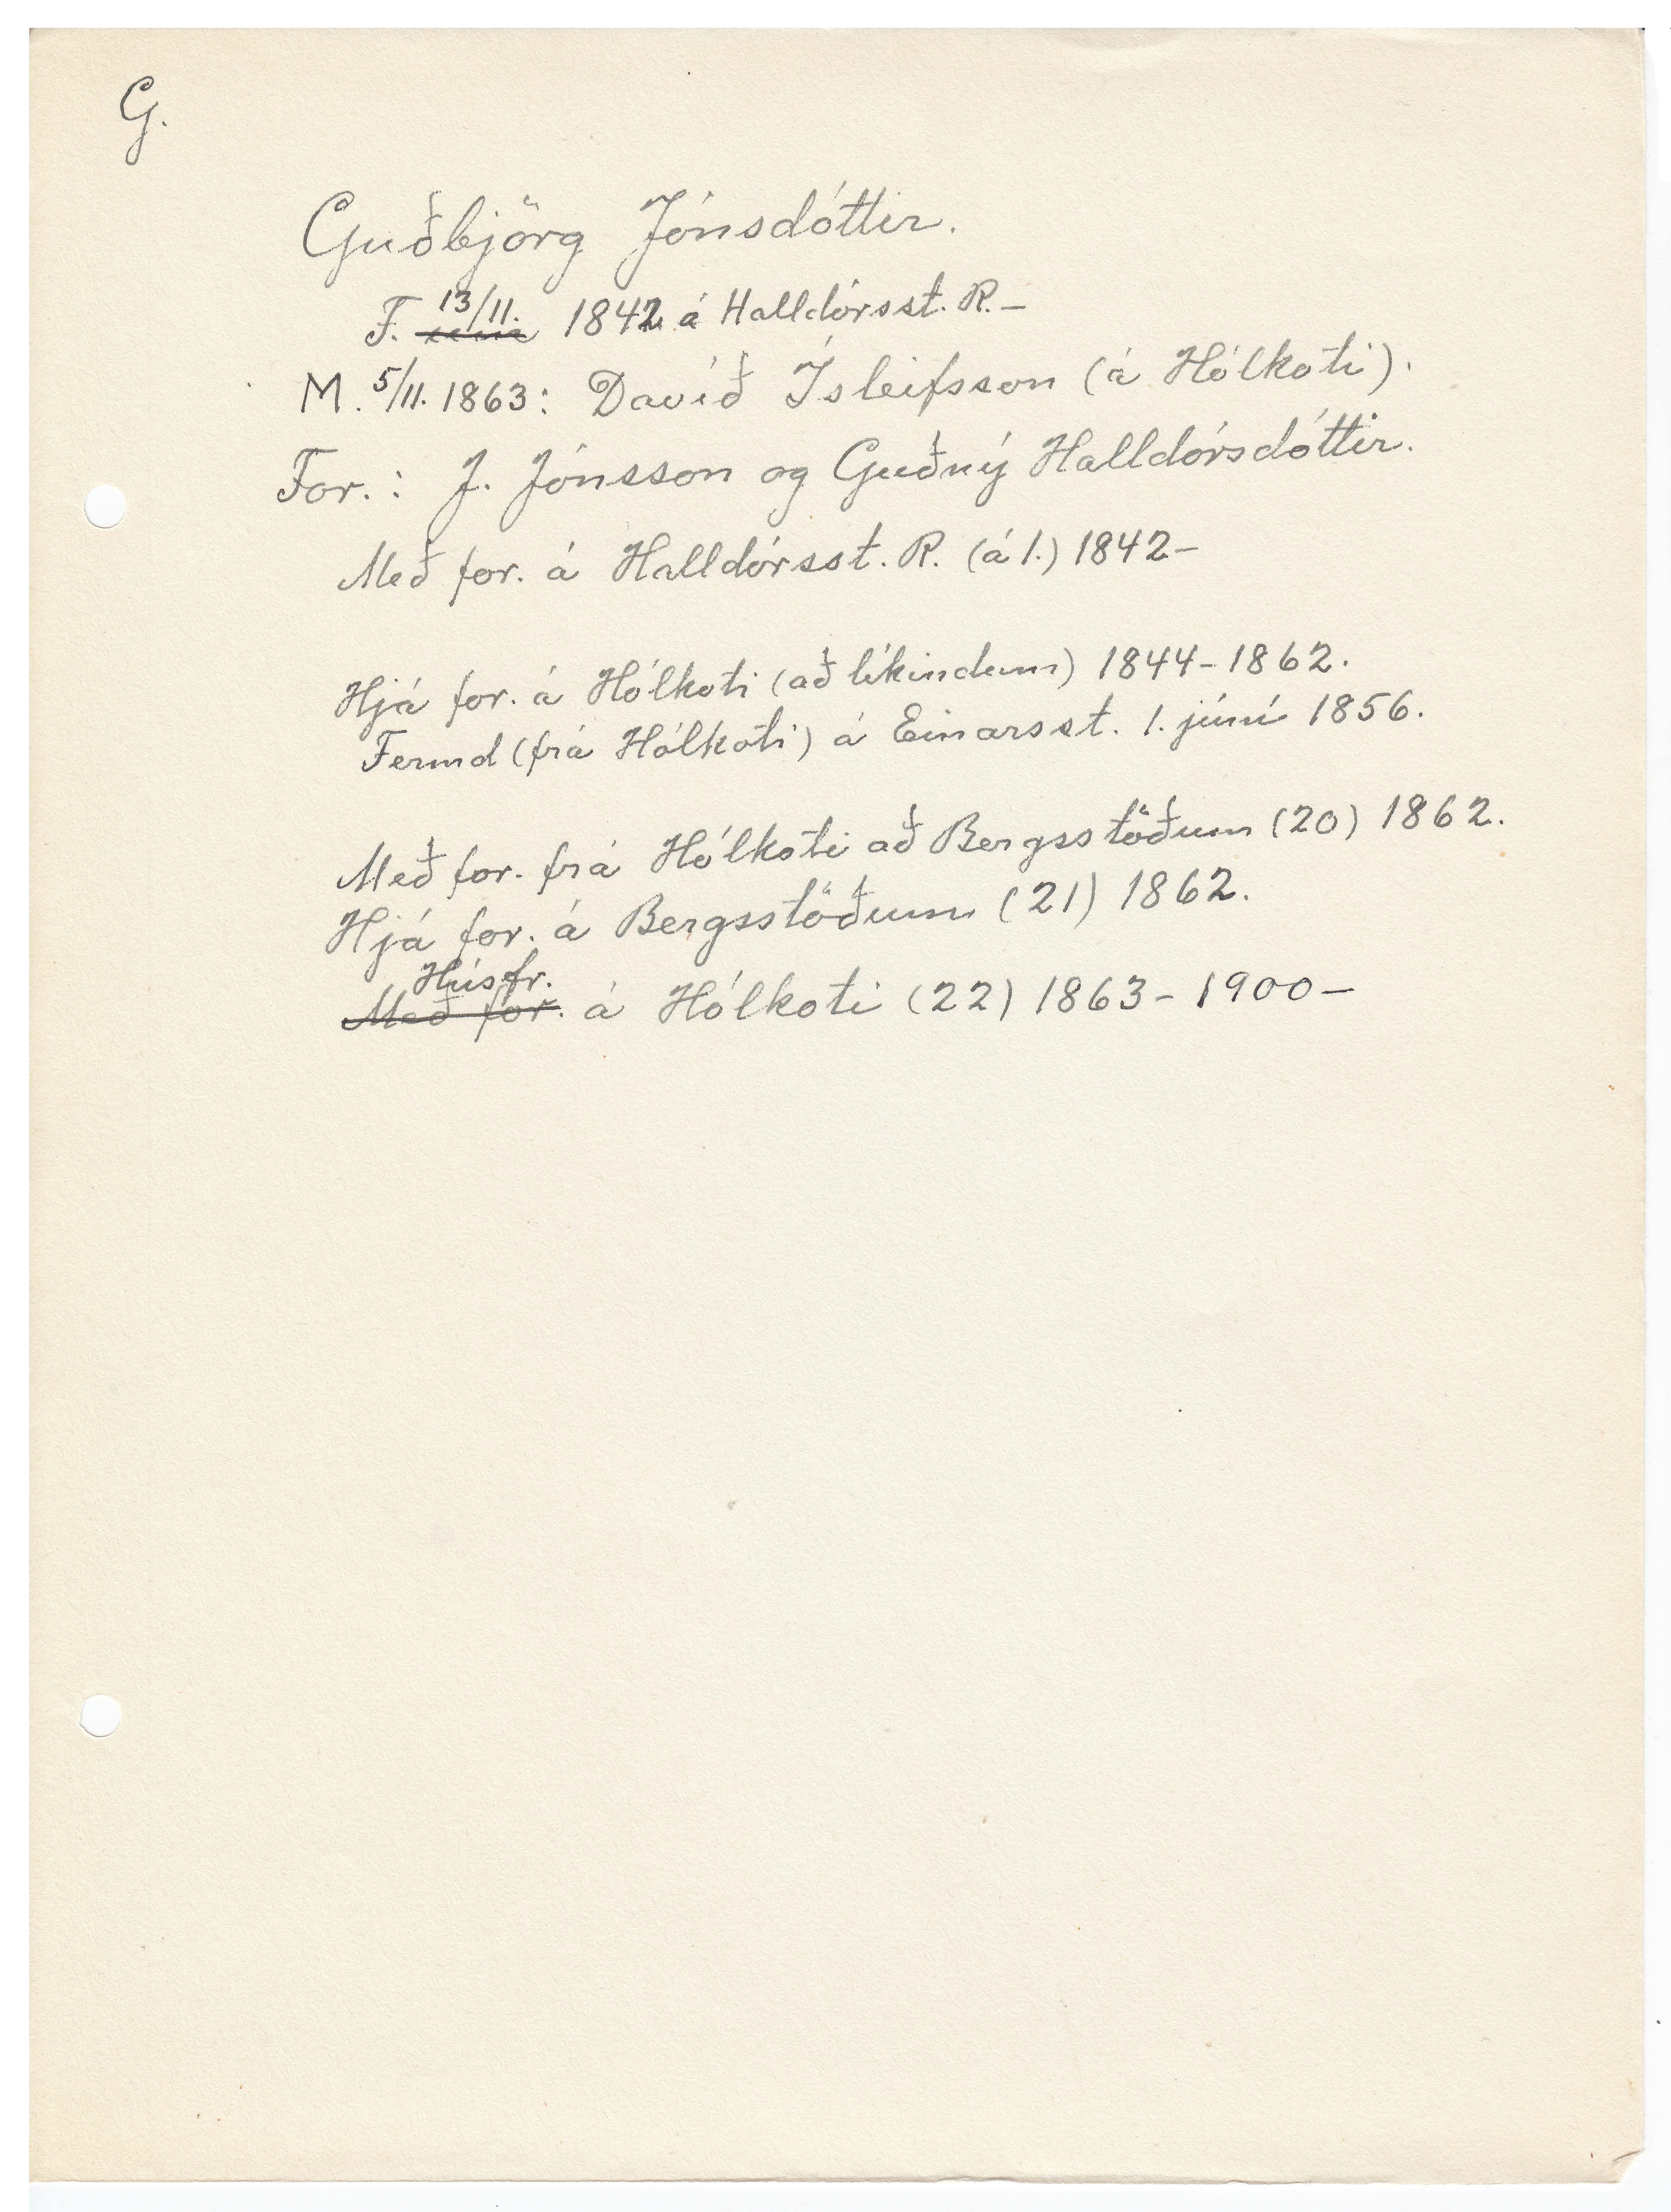 G.
Guðbjörg Jónsdóttir.
F. 13/11. 1842 á Halldórsst. R. –
M. 5/11. 1863: Davíð Ísleifsson (á Hólkoti).
For.: J. Jónsson og Guðný Halldórsdóttir.
Með for. á Halldórsst. R. (á 1.) 1842 –
Hjá for. á Hólkoti (að líkindum) 1844 – 1862.
Fermd (frá Hólkoti) á Einarsst. 1. júní 1856.
Með for. frá Hólkoti að Bergsstöðum (20) 1862.
Hjá for. á Bergsstöðum (21) 1862.
Húsfr.
Með for. á Hólkoti (22) 1863 – 1900 –